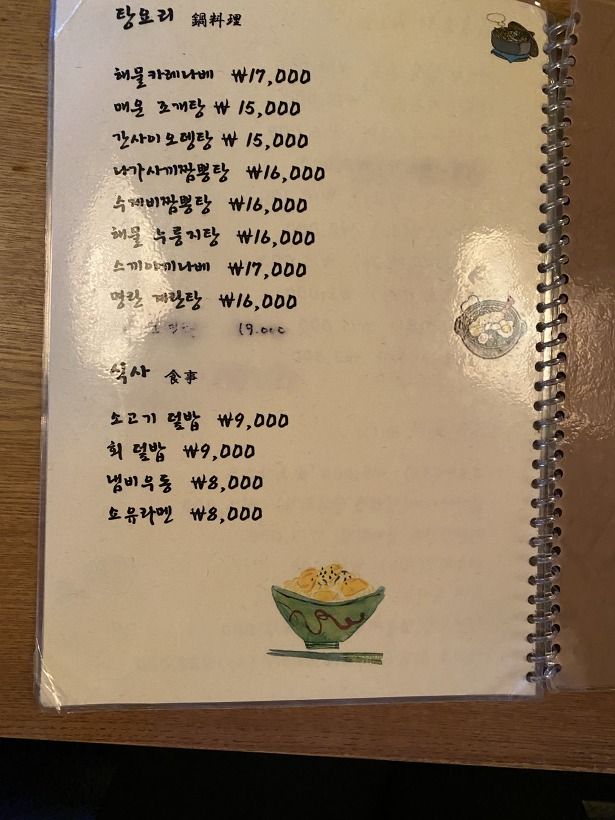 탕요리 鍋料理
해물카레나베 ₩17,000
매운 조개탕 ₩ 15,000
간사이오뎅탕 ₩ 15,000
나가사끼짬뽕탕 ₩16,000
수제비짬뽕탕 ₩16,000
해물 누룽지탕 ₩16,000
스끼야끼나베 ₩17,000
명란 계란탕 ₩16,000
19.000
식사 食事
소고기 덮밥 ₩9,000
회 덮밥 ₩9,000
냄비우동 ₩8,000
소유라멘 ₩8,000